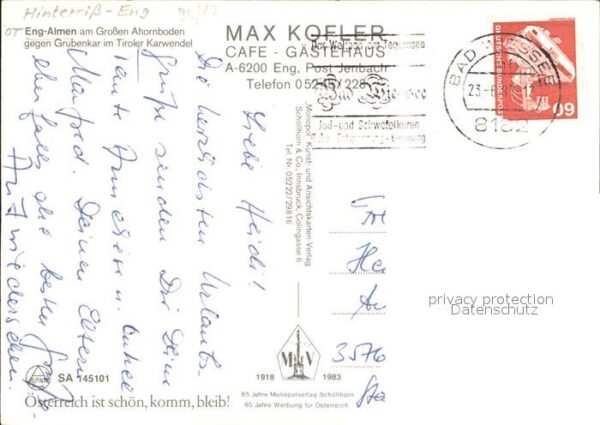 Hinterriß-Eng
OT Eng-Almen am Großen Ahornboden
gegen Grubenkar im Tiroler Karwendel
MAX KOFLER
CAFE - GASTEHAUS
A-6200 Eng, Post Jenbach
Telefon 05245/228
Liebe Heidi!
Die herzlichsten Urlaubs-
grüße senden Dir Deine
Tante Annelise u. Onkel
Manfred. Deinen Eltern
ebenfalls die besten Grüße.
Auf Wiedersehen.
Monopol Kunst- und Ansichtskarten-Verlag
Schöllhorn & Co., Innsbruck, Colingasse 5
Tel Nr. 05222/29816
Bad Wiessee
Jod- und Schwefelkuren
BAD WIESSEE
8182
DEUTSCHE BUNDESPOST
60
3576
privacy protection
Datenschutz
M V
1918 1983
65 Jahre Monopolverlag Schöllhorn
65 Jahre Werbung für Österreich
SA 145101
Österreich ist schön, komm, bleib!